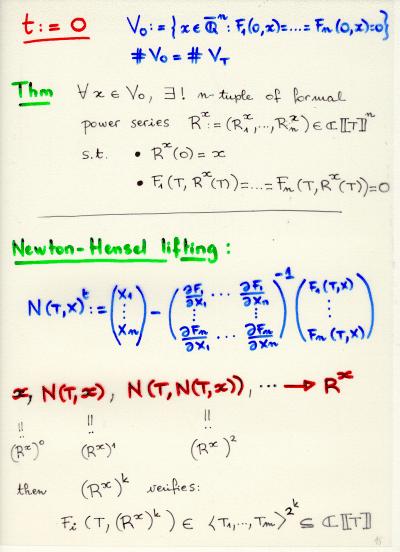 t := 0 V₀ := { x ∈ Q̄ⁿ : F₁(0,x)=...=Fₙ(0,x)=0}
# V₀ = # V_T
Thm ∀ x ∈ V₀, ∃! n-tuple of formal
power series Rˣ := (R₁ˣ,...,Rₙˣ) ∈ ℂ[[T]]ⁿ
s.t. • Rˣ(0) = x
• F₁(T, Rˣ(T)) = ... = Fₙ(T, Rˣ(T)) = 0
Newton-Hensel lifting :
N(T,X)ᵗ := (X₁ ⋮ Xₙ) − (∂F₁/∂X₁ ... ∂F₁/∂Xₙ ⋮ ⋮ ∂Fₙ/∂X₁ ... ∂Fₙ/∂Xₙ)⁻¹ (F₁(T,X) ⋮ Fₙ(T,X))
x, N(T,x), N(T,N(T,x)), ... → Rˣ
(Rˣ)⁰ (Rˣ)¹ (Rˣ)²
then (Rˣ)ᵏ verifies:
Fᵢ (T, (Rˣ)ᵏ) ∈ ⟨T₁,...,Tₘ⟩^{2^k} ⊆ ℂ[[T]]